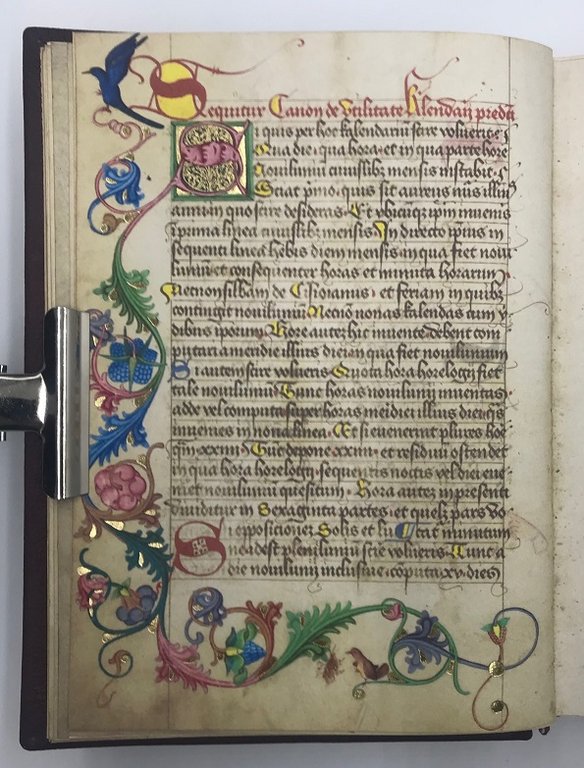 Sequitur Canon de Vtilitate Klendarij predcti
Si quis per hoc kalendariū scire voluerit ī
Qua die · qua hora · et in qua parte hore
Nouiluniū cuiuslibz mensis instabit ·
Sciat pīmo · quis sit aureus nūs illius
anni in quo scire desideras · Et vbicūqz ipm̄ inuenis
ī prima linea cuiuslibz mensis In directo ipsius in
sequenti linea hēbis diem mensis in qua fiet noui
lunium et consequenter horas et minuta horarum
Necnon sillabam de Cisioianus · et feriam in quibz
contingit nouilunium Necnō nonas kalendas cum y
dibus ipsorum · Hore autez hic inuente debent com
putari a meridie illius diei in qua fiet nouilunium
Si autem scire volueris · Quota hora horelogij fiet
tale nouilunium · Tunc horas nouilunij inuentas
adde vel computa super horas meridiei illius diei qīs
inuenies in nona linea · Et si euenerint plures hoc
qīn xxiiij · Tūc depone xxiiij · et residuū ostendet
in qua hora horelogij sequentis noctis vel diei eue
niet nouilunium quesitum · Hora autez in presenti
diuiditur in Sexaginta partes · et quelz pars vo
Si opposicionez Solis et lune catur minutum
inea dest pleniluniū scire volueris · Tunc a
die nouilunij inclusiue cōputa xv · dies